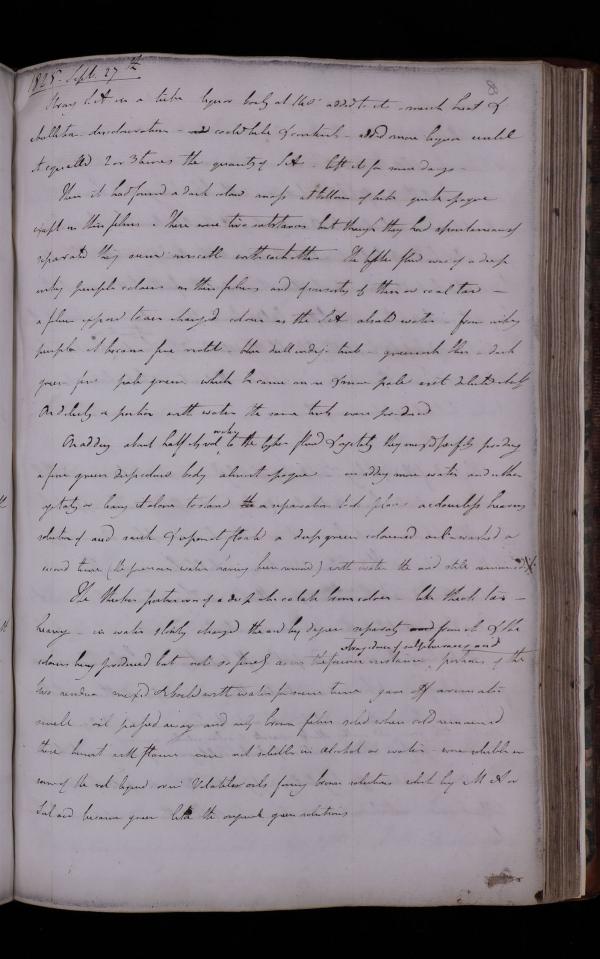 1825 Sept. 27th
8
Strong S A in a tube liquor boily at 186° added to it - much heat &
ebullition - discolouration - and cooled tube & contents - added more liquor until
it equalled 2 or 3 times the quantity of S A - left it for some days -
Then it had formed a dark colour mass at bottom of tube quite opaque
except in thin films - There were two substances but though they had spontaneously
separated they were miscible with each other The lighter fluid was of a deep
inky purple colour in thin films and of viscosity of thin coal tar -
a film exposed to air changed colour as the S A absorbed water - from inky
purple it became fine violet - blue dull indigo tint - greenish blue - dark
green pale green which became more & more pale
On diluting a portion with water the same tints were produced
On adding about half its vol water to the lighter fluid & agitating they mixed perfectly producing
a fine green body almost opaque - on adding more water and
agitating or leaving it alone to stand a separation took place a colourless heavy
solution of acid sunk & upon it floated a deep green coloured washed a
second time (the previous water having been removed) with water the acid still remained X
The thicker portion was of a deep chocolate brown colour - like thick tar -
heavy - in water slowly changed the acid by degrees separating from it & the
colours being produced but not so finely as in the former instance, portions of the
strong odour of sulphurous acid
two residua mixed & boiled with water for some time gave off aromatic
smell oil passed away and only brown films solid when cold remained
these burnt with flame were not soluble in alcohol or water - were soluble in
some of the volatile oils forming brown solutions which by M A or
Sul acid became green like the original green solutions